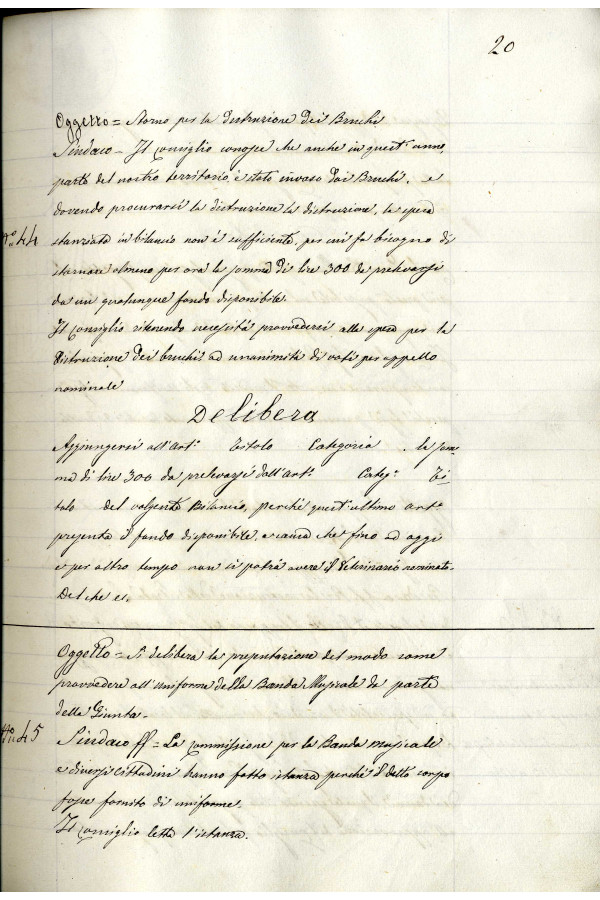 20
Oggetto = Storno per la distruzione dei Bruchi
Sindaco - Il Consiglio conosce che anche in quest'anno,
parte del nostro territorio, è stato invaso dai Bruchi, e
dovendo procurarsi la distruzione la distruzione, la spesa
N.º 44 stanziata in bilancio non è sufficiente, per cui fa bisogno di
stornare almeno per ora la somma di lire 300 da prelevarsi
da un qualunque fondo disponibile.
Il Consiglio ritenendo necessità provvedersi alla spesa per la
distruzione dei bruchi, ad unanimità di voti per appello
nominale
Delibera
Aggiungersi all'Art.º Titolo Categoria la som=
ma di lire 300 da prelevarsi dall'Art.º Categ.ª Ti
tolo del volgente Bilancio, perchè quest'ultimo art.º
presenta il fondo disponibile, a causa che fino ad oggi
e per altro tempo non si potrà avere il Veterinario nominato.
Del che ec.
Oggetto = Si delibera la presentazione del modo come
provvedere all'uniforme della Banda Musicale da parte
della Giunta.
N.º 45 Sindaco ff = La Commissione per la Banda musicale
e diversi cittadini hanno fatto istanza perchè il detto corpo
fosse fornito di uniforme.
Il Consiglio letta l'istanza.